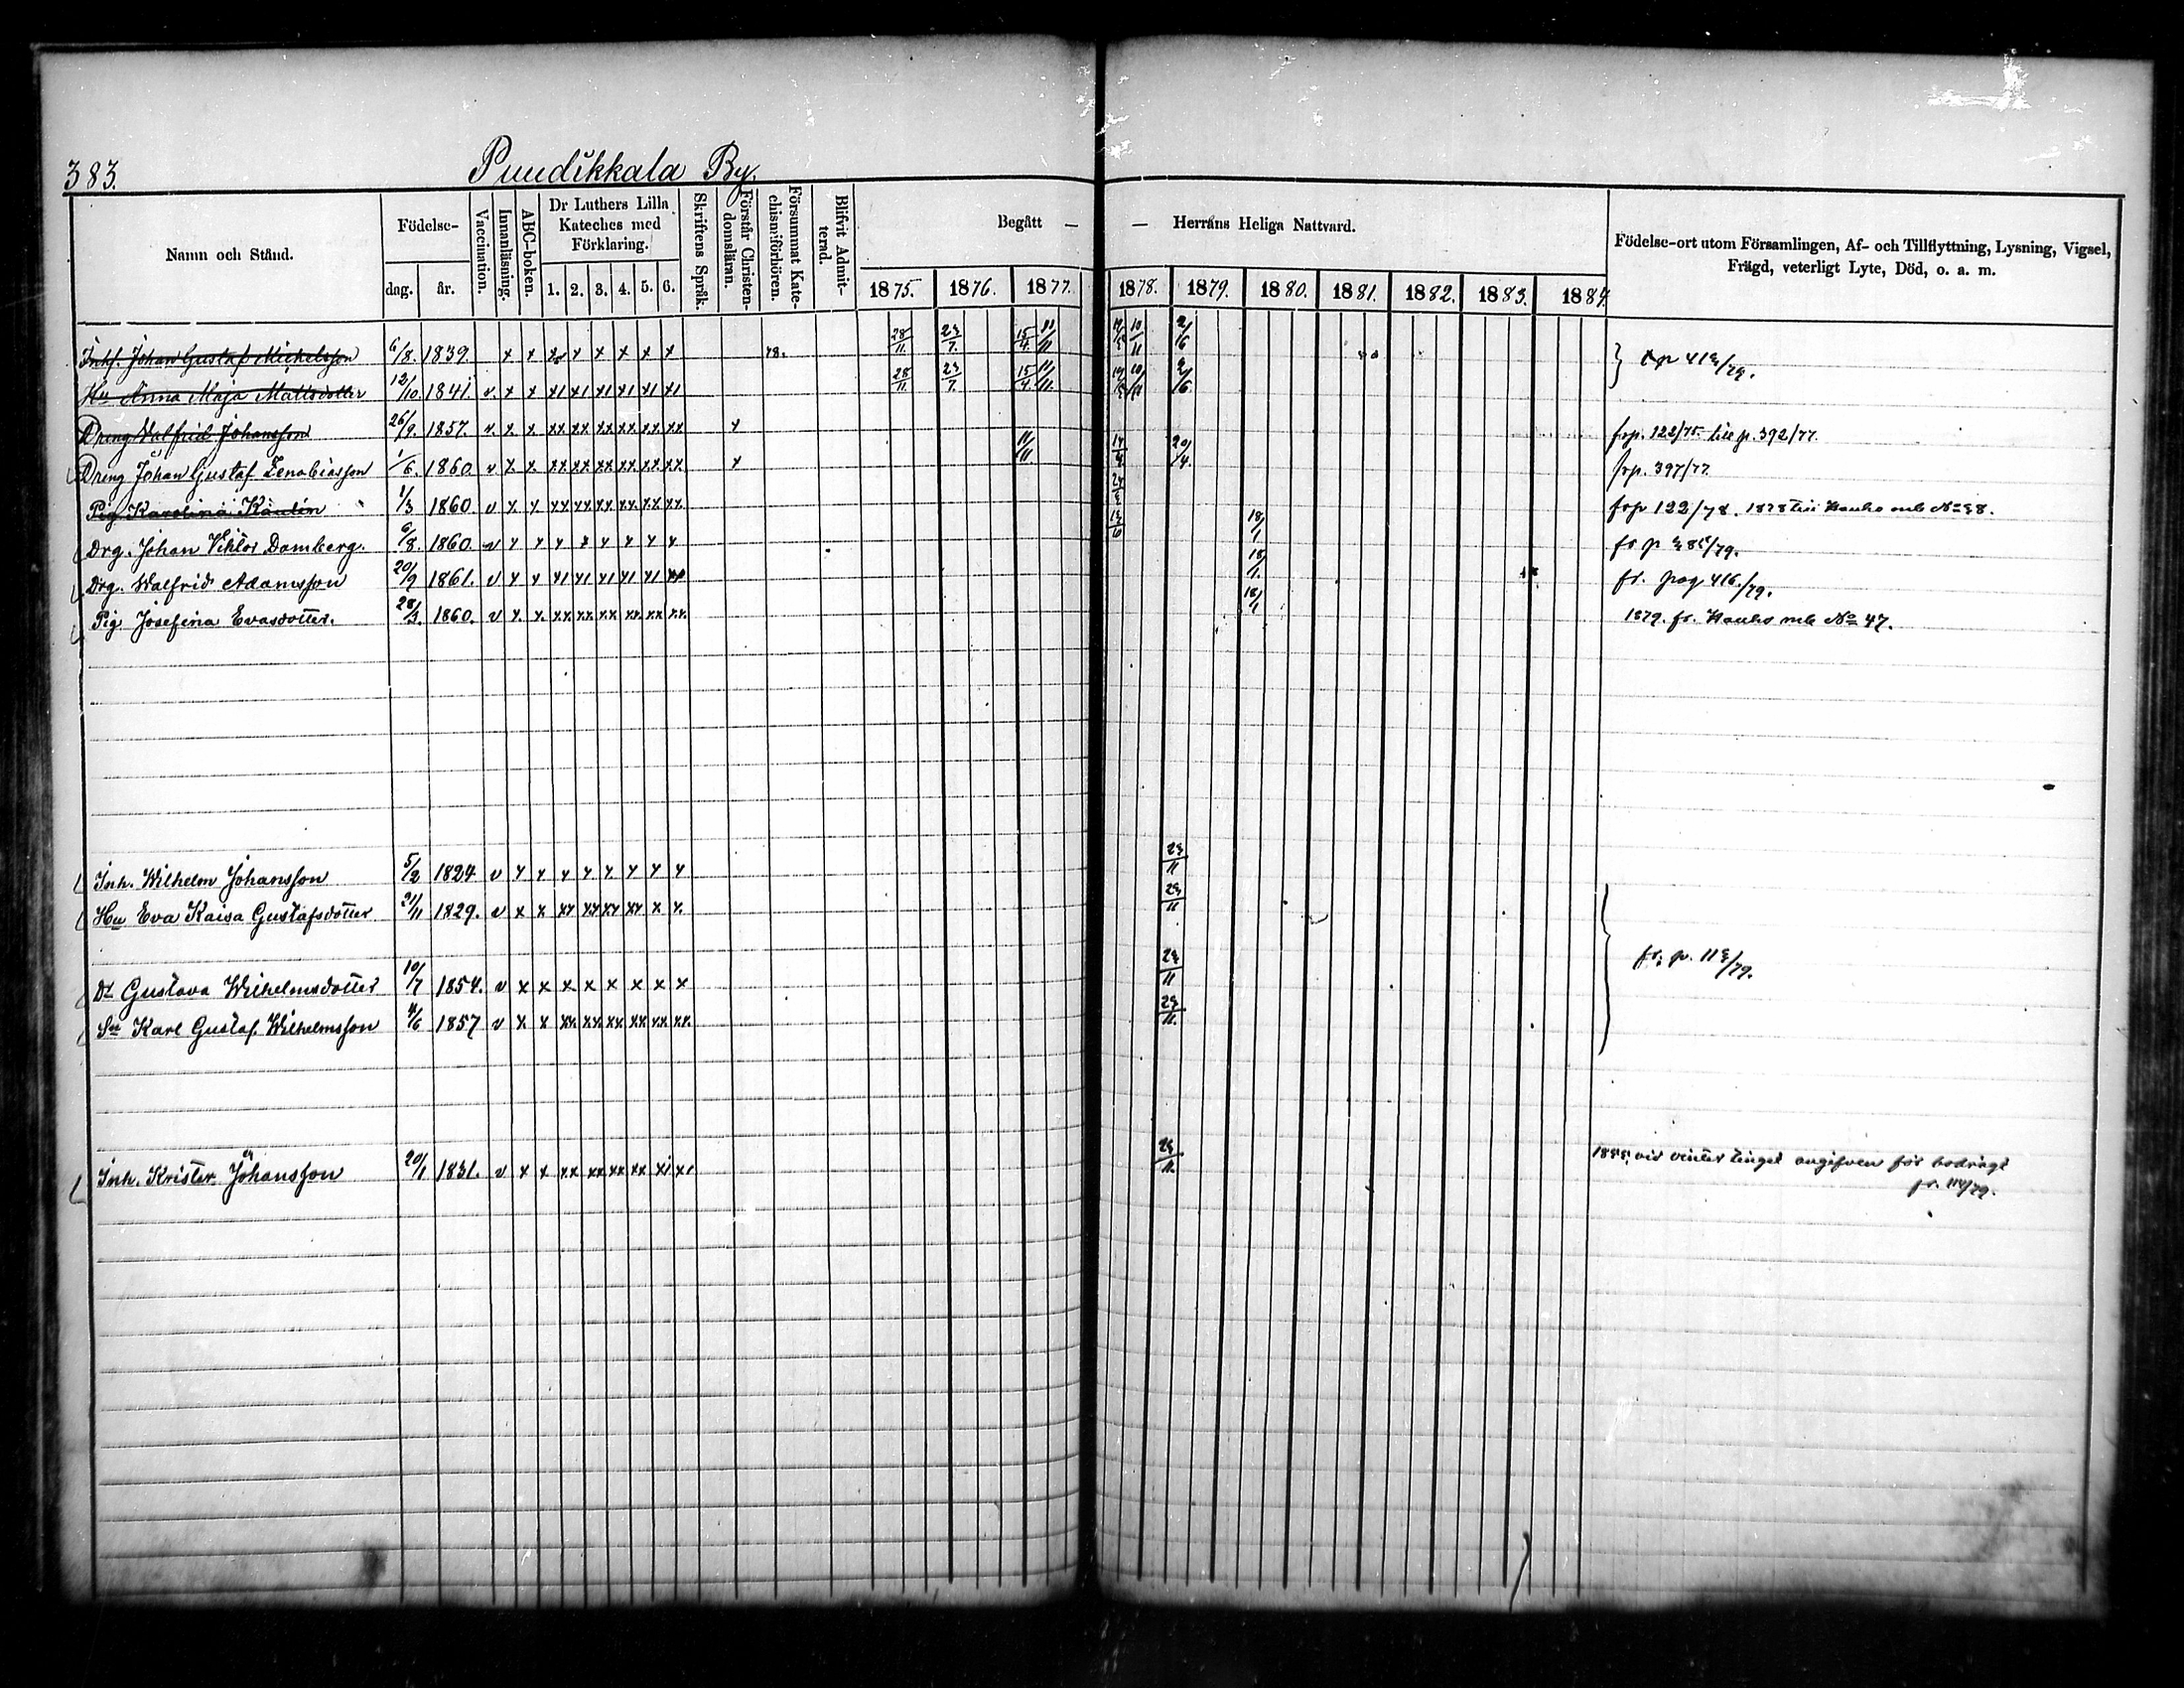 383.
Puudikkala By.
Namn och Stånd.
Födelse-
dag.
år.
Vaccination.
Innanläsning.
ABC-boken.
Dr Luthers Lilla
Kateches med
Förklaring.
1. 2. 3. 4. 5. 6.
Skriftens Språk.
Förstår Christen-
domsläran.
Försummat Kate-
chismiförhören.
Blifvit Admit-
terad.
Begått —
— Herrans Heliga Nattvard.
1875. 1876. 1877. 1878. 1879. 1880. 1881. 1882. 1883. 1884.
Födelse-ort utom Församlingen, Af- och Tillflyttning, Lysning, Vigsel,
Frägd, veterligt Lyte, Död, o. a. m.
Johan Gustaf Michelsson 6/8. 1839. x x x x x x x 78. 28/11. 23/7. 15/4. 11/11 10/11 2/6
Hu Anna Maja Mattsdotter 12/10. 1841. v. x x x1 x1 x1 x1 x1 x1 28/11. 23/7. 15/4. 11/11. 2/6.
Dreng Walfrid Johansson 26/9. 1857. v. x. x. xx xx xx xx xx xx x frp. 122/75 till p. 392/77.
Dreng Johan Gustaf Zenobiasson 1/6. 1860. v x. x. xx xx xx xx xx xx x 11/11. 14/4. 20/4. frp. 397/77
Pig. Karolina Kaulin 1/3 1860 v x. x. xx xx xx xx xx xx frp 122/78. 1878 till Hauho mb No 38.
Drg. Johan Viktor Damberg. 6/8. 1860. v x x x x x x x x 18/1 fr p 385/79.
Drg. Walfrid Adamsson 20/9 1861. v x x x1 x1 x1 x1 x1 18/1. fr. pag 416./79.
Pig Josefina Evasdotter. 28/3. 1860. v x. x. xx xx xx xx xx xx. 18/1 1879. fr. Hauho mb No 47.
Inh. Wilhelm Johansson 5/2 1824 v x x x x x x x x 23/11
Hu Eva Kaisa Gustafsdotter 21/11 1829. v x x xx xx xx xx x x. 23/11
Dr Gustava Wilhelmsdotter 10/7 1854. v x x x x x x x x 23/11 fr. p. 113/79.
Sn Karl Gustaf Wilhelmsson 4/6 1857 v x. x xx. xx xx xx xx xx. 23/11.
Inh. Krister Johansson 20/1 1831. v x x xx xx xx xx x1 x1 23/11. vid vinter tinget angifven för bedrägt
fr. 114/79.